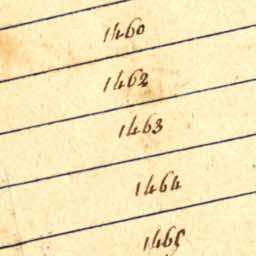 1460
1462
1463
1464
1465